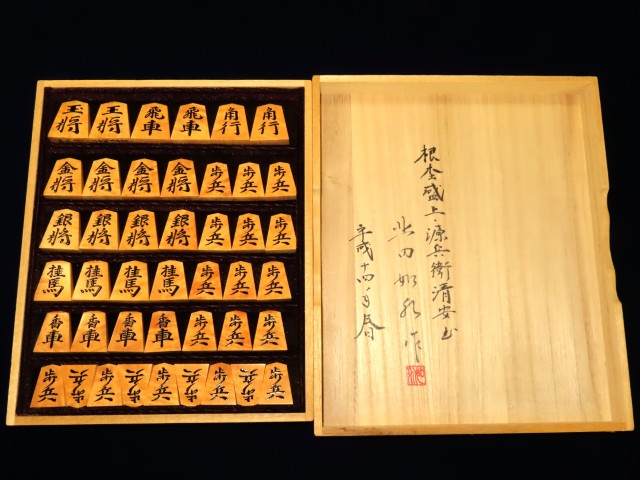 玉将 王将 飛車 飛車 角行 角行
金将 金将 金将 金将 歩兵 歩兵 歩兵
銀将 銀将 銀将 銀将 歩兵 歩兵 歩兵
桂馬 桂馬 桂馬 桂馬 歩兵 歩兵 歩兵
香車 香車 香車 香車 歩兵 歩兵 歩兵
歩兵 歩兵 歩兵 歩兵 歩兵 歩兵 歩兵 歩兵 歩兵
根杢盛上 源兵衛清安
田 作
平成十四年春